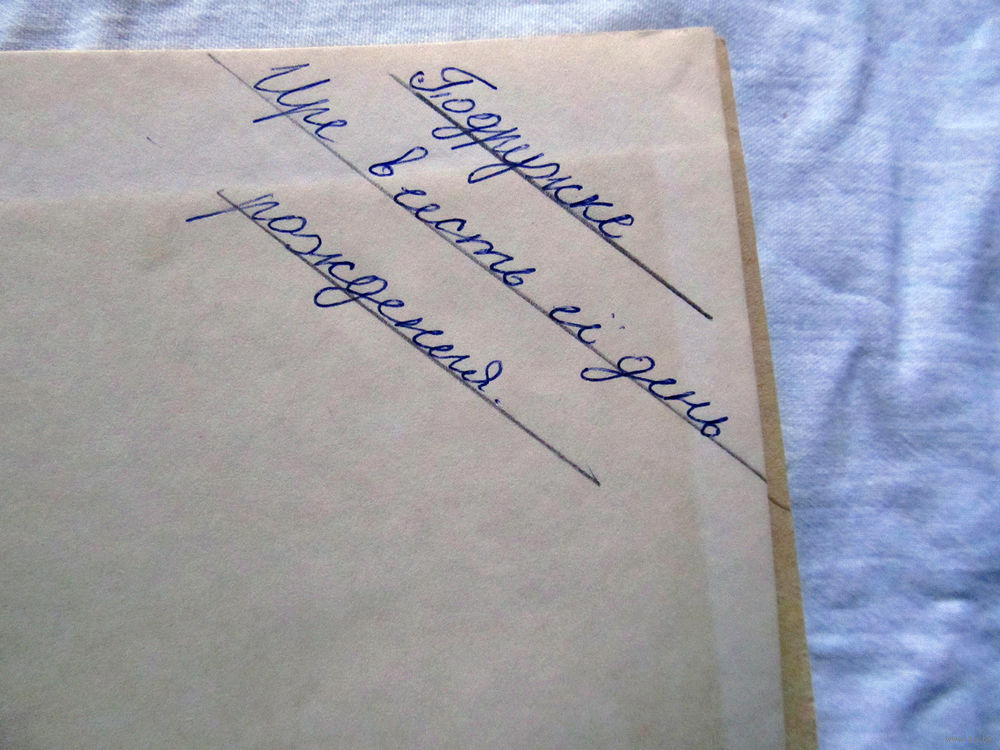 Подружке
Ире в честь её день
рождения.